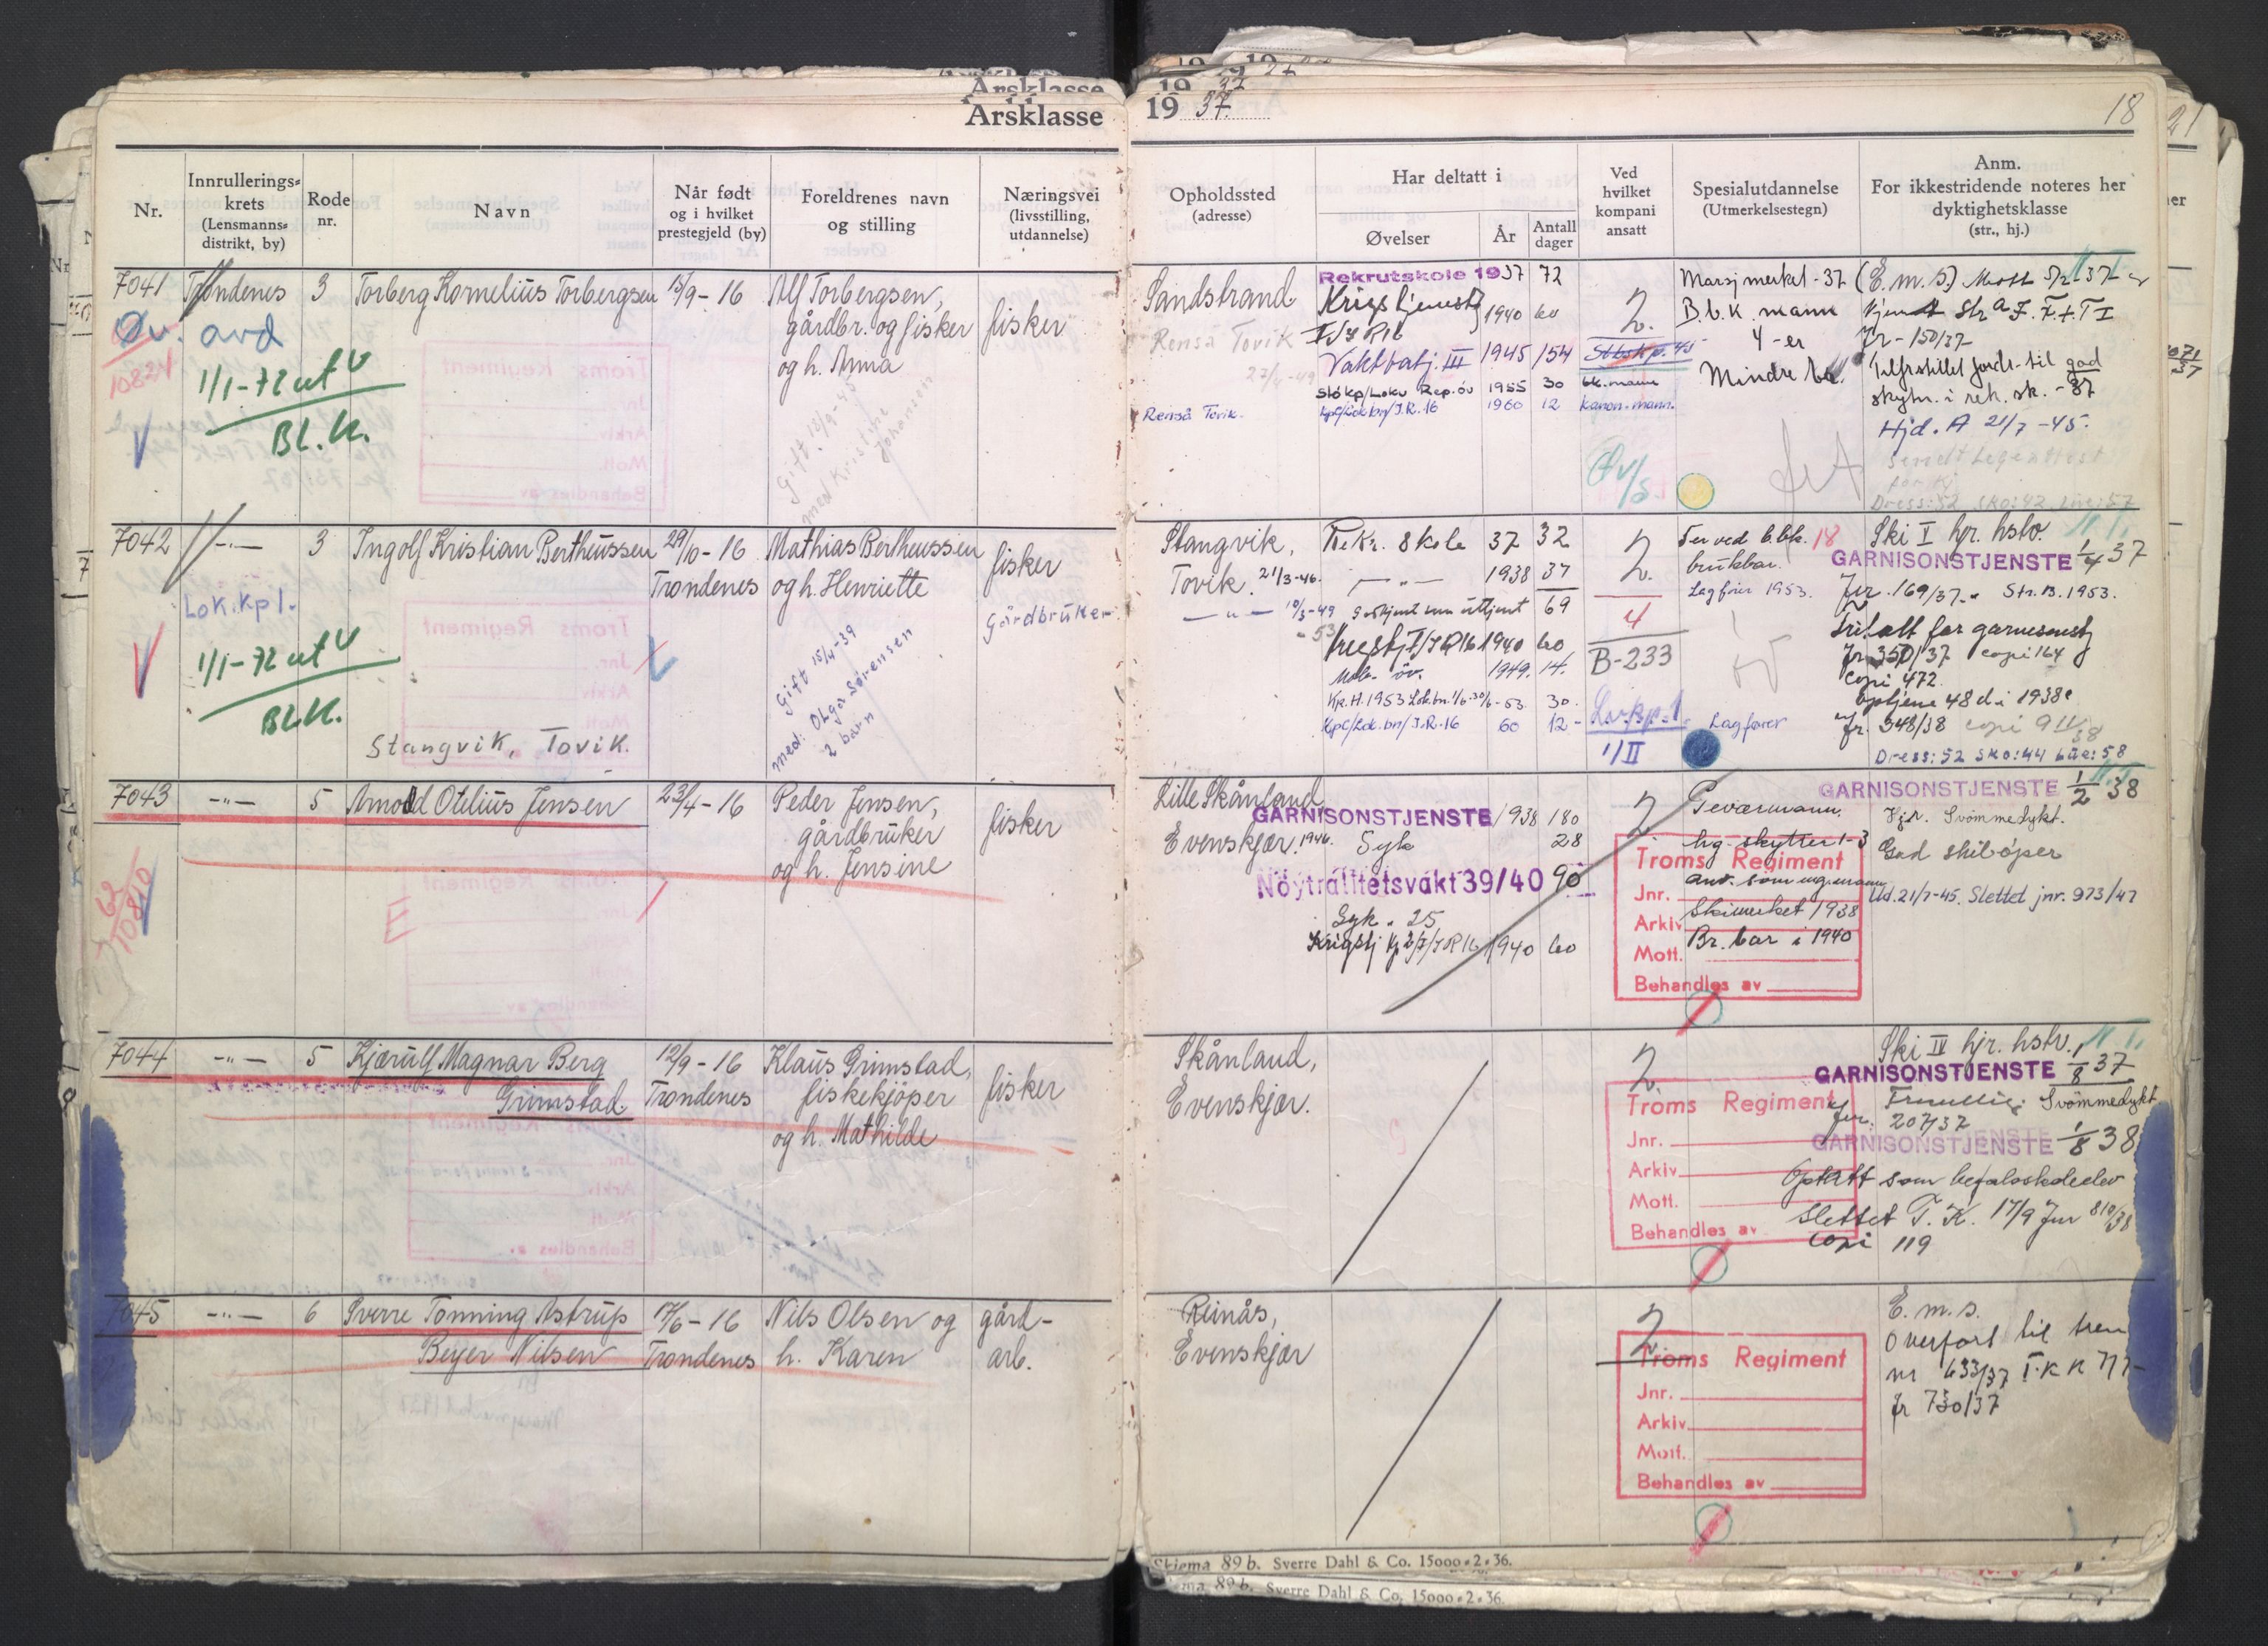 Årsklasse 1937.
18
Nr.
Innrullerings-
krets
(Lensmanns-
distrikt, by)
Rode
nr.
Navn
Når født
og i hvilket
prestegjeld (by)
Foreldrenes navn
og stilling
Næringsvei
(livsstilling,
utdannelse)
Opholdssted
(adresse)
Har deltatt i
Øvelser
År
Antall
dager
Ved
hvilket
kompani
ansatt
Spesialutdannelse
(Utmerkelsestegn)
Anm.
For ikkestridende noteres her
dyktighetsklasse
(str., hj.)
7041 Trondenes 3 Torberg Kornelius Torbergsen 15/9-16
Alf Torbergsen,
gårdbr. og fisker
og h. Anna
fisker
Øv. avd
10824
1/1-72 ut
BL.K.
Gift 13/9-45
med Kristine
Johansen
Sandstrand
Renså Tovik
27/4-49
Renså Tovik.
Rekrutskole 1937 72
Krigstjenest
I/IR16 1940 60
Vaktbatj. III 1945 154
Stbkp/Lokv Rep.øv 1955 30
Kp1/Lok.bn/I.R.16 1960 12
2.
Stbskp. 45
bk.mann
kanon.mann.
Øv/s.
Marsjmerket-37
B.b.K. mann
4-er
Mindre bra.
(E.m.s.)
Jr-150/37
Tilfrstillet fordr. til god
skytn. i rek. sk.-37
Hjd. A 21/7-45.
sendt Legeattest
Dress:52 sko:42 lue:57
7042 -"- 3 Ingolf Kristian Bertheussen 29/10-16
Trondenes
Mathias Bertheussen
og h. Henriette
fisker
Gårdbruker
Lok.kp1.
1/1-72 ut
BL.K.
Stangvik, Tovik.
Gift 15/4-39
med: Olga Sørensen
2 barn
Stangvik,
Tovik. 21/3-46.
-"- 10/3-49
-53
Rekr. Skole 37 32
-"- 1938 37
Godkjent som uttjent 69
Krigstj I/IR16 1940 60
Mob. øv. 1949. 14.
Kp.H.1953 Lok.bn. 1/6-30/6-53. 30.
Kp1/Lok.bn/I.R.16 60 12-
2
2.
4
B-233
Lokp.1.
1/II
5er ved b.bk. 18
brukbar.
Lagfører 1953.
Lagfører
Ski I hjr. hstv.
GARNISONSTJENSTE 1/4 37
Jnr. 169/37. Str.B. 1953.
fritatt for garnisonstj
Jr 350/37 copi 164
Copi 472
Optjene 48 d i 1938
Jr. 348/38 copi 9 11/38
Dress:52 sko:44 lue:58
7043 -"- 5 Arnold Otelius Jensen 23/4-16
Peder Jensen,
gårdbruker
og h. Jensine
fisker
62
10810
E
Lille Skånland
Evenskjær. 1946.
GARNISONSTJENSTE 1938 180
Syk 28
Nøytralitetsvakt 39/40 90
Syk. 25
Krigstj Kp2/I/IR16 1940 60
2
Geværmann.
hg. skytter 1-3
anv. som mg.mann
Skimerket 1938
Br. bar i 1940
Troms Regiment
Jnr.
Arkiv
Mott.
Behandles av
GARNISONSTJENSTE 1/2 38
Hjr. Svømmedykt.
God skiløper
Ud. 21/7-45. Slettet jnr. 973/47
7044 -"- 5 Kjærulf Magnar Berg
Grimstad
12/9-16
Trondenes
Klaus Grimstad,
fiskekjøper
og h. Mathilde
fisker
Skånland,
Evenskjær.
2.
Troms Regiment
Jnr.
Arkiv
Mott.
Behandles av
Ski IV hjr. hstv.
GARNISONSTJENSTE 1/8 37
Svømmedykt
Jnr. 207/37
GARNISONSTJENSTE 1/8 38
Optatt som befalsskoleelev
Slettet T.K. 17/9 Jnr 810/38
Copi 119
7045 -"- 6 Sverre Tonning Astrup
Beyer Nilsen
17/6-16
Trondenes
Nils Olsen og
h. Karen
gård-
arb.
Reinås,
Evenskjær
2.
Troms Regiment
Jnr.
Arkiv
Mott.
Behandles av
E.m.s.
Overført til tren
nr 633/37 T.K.
Jr 730/37
Skjema 89 b. Sverre Dahl & Co. 15000-2-36.
Sverre Dahl & Co. 15000-2-36.